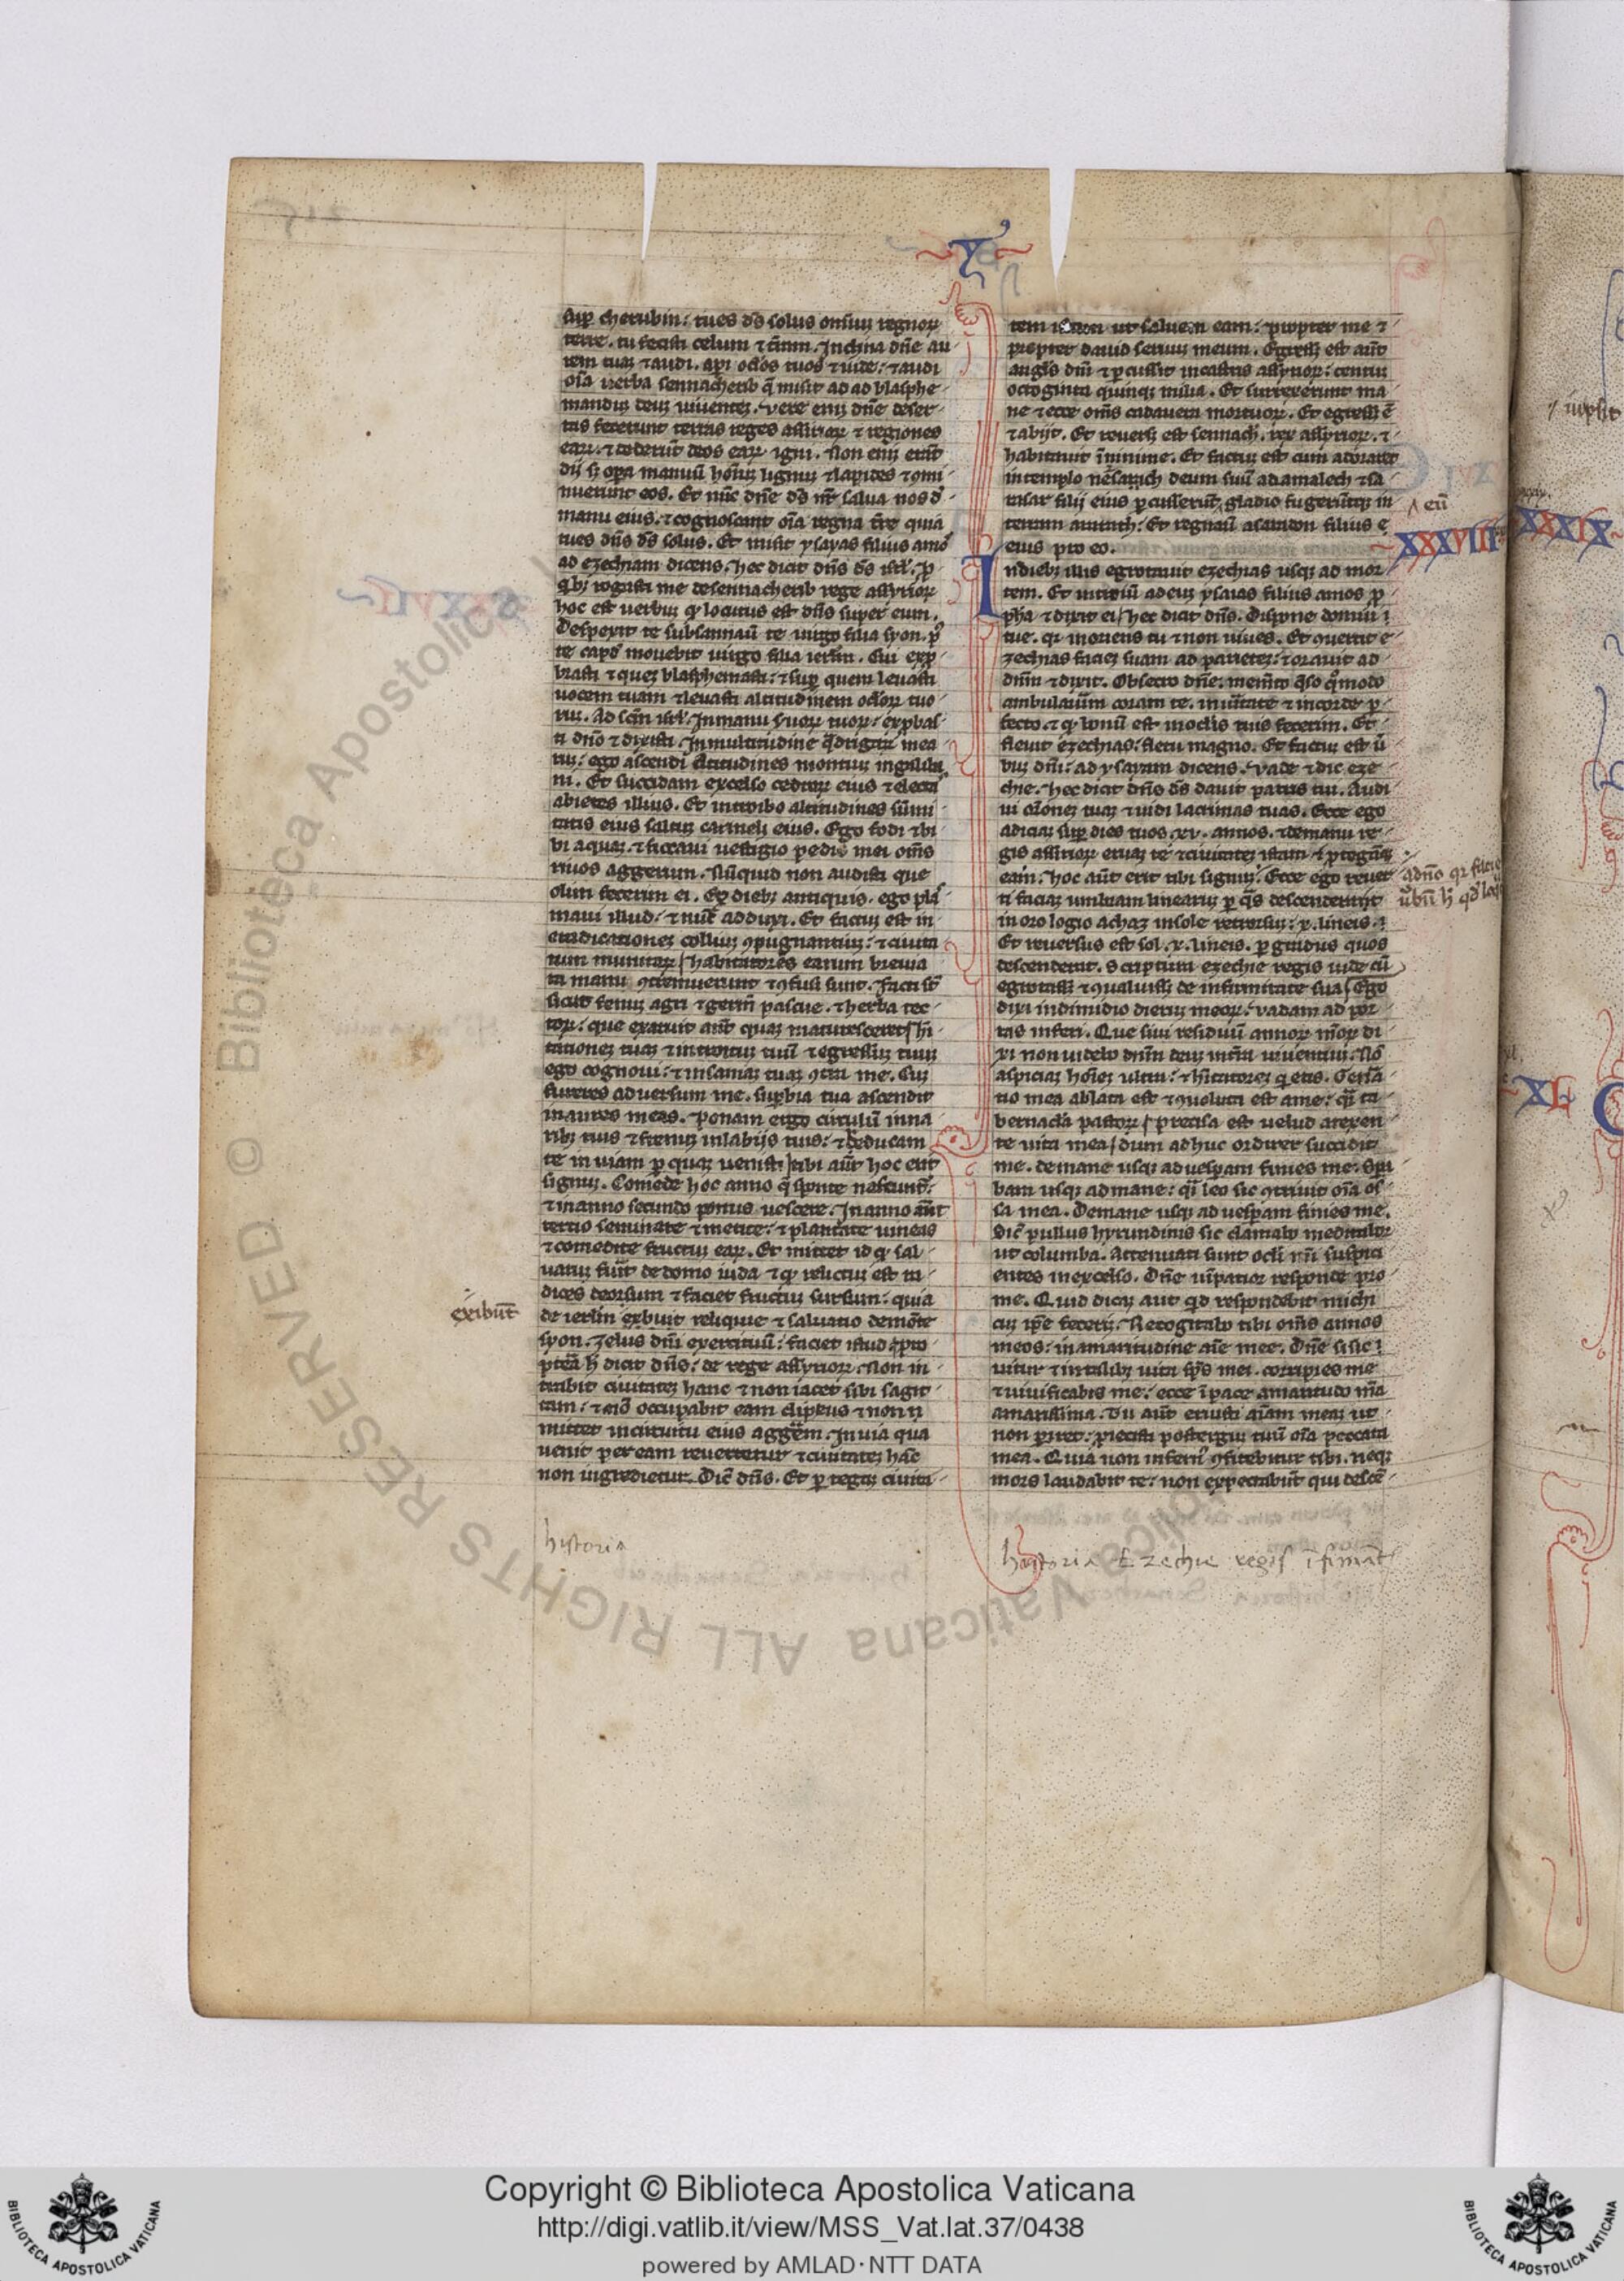 Y
sup cherubin: tu es ds̄ solus omniuꝫ regnoꝝ
terre. tu fecisti celum ⁊ t̄ram. Inclina dn̄e au
rem tuaꝫ ⁊ audi. apꝫi oc̄los tuos ⁊ uide: ⁊ audi
oīa uerba sennacherib q̄ misit ad ad blasphe
manduꝫ deuꝫ uiuenteꝫ. Vere eniꝫ dn̄e deser
tas fecerunt terras reges assirioꝝ ⁊ regiones
eaꝝ. ⁊ dederūt deos eaꝝ igni. Non eniꝫ erāt
dij sꝫ opa manuū hoīum lignuꝫ ⁊ lapides ⁊ ꝯmi
nuerunt eos. Et nūc dn̄e ds̄ nr̄ salua nos d̄
manu eius. ⁊ cognoscant oīa regna t̄re quia
tu es dn̄s ds̄ solus. Et misit ysayas filius amos
ad ezechiam dicens. hec dicit dn̄s ds̄ isrl̄. ꝓ
qb; rogasti me de sennacherib rege assyrioꝝ
hoc est uerbuꝫ qꝫ locutus est dn̄s super eum.
Despexit te subsannauit te uirgo filia syon. pꝰ
te caput mouebit uirgo filia ierlm̄. Cui exp
brasti ⁊ queꝫ blasphemasti: ⁊ sup quem leuasti
uocem tuam ⁊ leuasti altitudinem oc̄loꝝ tuo
ruꝫ. Ad scm̄ isrl̄. In manu seruoꝝ tuoꝝ: expbas
ti dn̄o ⁊ dixisti. In multitudine q̄drigaꝝ mea
ruꝫ: ego ascendi altitudines montiuꝫ iuga liba
ni. Et succidam excelsa cedroꝝ eius ⁊ electas
abietes illius. Et introibo altitudines sūmi
tatis eius saltuꝫ carmeli eius. Ego fodi ⁊ bi
bi aquaꝫ. ⁊ siccaui uestigio pedis mei om̄s
riuos aggerum. Nūquid non audisti que
olim fecerim ei. Ex dieb; antiquis. ego plas
maui illud: ⁊ nūc adduxi. Et factuꝫ est in
eradicationeꝫ colliuꝫ ꝯpugnantiuꝫ: ⁊ ciuita
tum munitaꝝ habitatores earum breuia
ta manu ꝯtremuerunt ⁊ ꝯfusi sunt. facti st̄
sicut fenuꝫ agri ⁊ gram̄ pascue. ⁊ herba tec
toꝝ: que exaruit ant̄ quaꝫ maturesceret hī
tationeꝫ tuaꝫ ⁊ introituꝫ tuū ⁊ egressuꝫ tuuꝫ
ego cognoui: ⁊ insaniaꝫ tuaꝫ ꝯtra me. Cuꝫ
fureres aduersum me. supbia tua ascendit
in aures meas. Ponam ergo circulū in na
rib; tuis ⁊ frenuꝫ in labijs tuis: ⁊ reducam
te in uiam ꝑ quaꝫ uenisti tibi aūt hoc erit
signuꝫ. Comede hoc anno q̄ sponte nascunt̄.
⁊ in anno secundo pomis uescere. In anno aūt
tertio seminate ⁊ metite: ⁊ plantate uineas
⁊ comedite fructuꝫ eaꝝ. Et mittet id qꝫ sal
uatuꝫ fuīt de domo iuda ⁊ qꝫ relictuꝫ est ra
dices deorsum ⁊ faciet fructuꝫ sursum: quia
exibūt
de ierlm̄ exbuit reliquie ⁊ saluatio de mōte
syon. Zelus dn̄i exercituū: faciet istud ꝓpto
ptea h̄ dicit dn̄s: de rege assyrioꝝ. Non in
trabit ciuitateꝫ hanc ⁊ non iacet sibi sagit
tam: ⁊ nō occupabit eam clipeus ⁊ non
mittet in circuitu eius aggem. In uia qua
uenit per eam reuertetur ⁊ ciuitateꝫ hāc
non ingredietur. Dic̄ dn̄s. Et ꝓtegaꝫ ciuita
historia
tem istam ut saluem eam: propter me ⁊
propter dauid seruuꝫ meum. Egressꝰ est aūt
angls̄ dn̄i ⁊ pcussit in castris assyrioꝝ: centuꝫ
octoginta quinqꝫ milia. Et surrexerunt ma
ne ⁊ ecce om̄s cadauera mortuoꝝ. Et egressꝰ ē
⁊ abijt. Et reuersꝰ est sennach̄. rex assyrioꝝ. ⁊
habitauit ī niniue. Et factuꝫ est cum adoraret
in templo nesarach deum suū adamalech ⁊ sa
rasar filij eius pcusserūt gladio fugerūtqꝫ in
eū
terram ararath: Et regnauit asaradon filius ē
eius pro eo.
XXXVIII
In dieb; illis egrotauit ezechias usqꝫ ad mor
tem. Et introiuit ad euꝫ ysaias filius amos ꝓ
pha ⁊ dixit ei hec dicit dn̄s. Dispone domui
tue. qꝛ morieris tu ⁊ non uiues. Et ꝯuertit e
zechias facieꝫ suam ad parieteꝫ: ⁊ orauit ad
dn̄m ⁊ dixit. Obsecro dn̄e: memēto q̄so qͦmodo
ambulauerim coram te. in ūitate ⁊ in corde ꝑ
fecto. ⁊ qꝫ bonū est in oclis tuis fecerim. Et
fleuit ezechias: fletu magno. Et factuꝫ est ū
buꝫ dn̄i: ad ysayam dicens. Vade ⁊ dic eze
chie. hec dicit dn̄s ds̄ dauit patris tui. Audi
ui ōr̄oneꝫ tuaꝫ ⁊ uidi lacrimas tuas. Ecce ego
adiciaꝫ sup dies tuos .xv. annos. ⁊ de manu re
gis assirioꝝ eruaꝫ te ⁊ ciuitateꝫ istam ⁊ ꝓtegaꝫ
eam. hoc aūt erit tibi signuꝫ. Ecce ego reuer
a dn̄o qꝛ faciet
ūbū h̄ qd̄ loq
ti faciaꝫ umbram linearuꝫ ꝑ q̄s descenderat
in orologio achaz in sole retrorsuꝫ: .x. lineis.
Et reuersus est sol .x. lineis. ꝑ gradus quos
descenderat. Scriptura ezechie regis iude cū
egrotassꝫ ⁊ ꝯualuissꝫ de infirmitate sua Ego
dixi in dimidio dieruꝫ meoꝝ: uadam ad por
tas inferi. Quesiui residuū annoꝝ meoꝝ di
xi non uidebo dn̄m deuꝫ in t̄ra uiuentiuꝫ. Nō
aspiciaꝫ hoīeꝫ ultra: ⁊ hītatoreꝫ qetis. Genera
tio mea ablata est ⁊ ꝯuoluta est a me: q̄i ta
bernacl̄a pastoꝝ precisa est uelud a texen
te uita mea dum adhuc ordirer succidit
me. de mane usqꝫ ad uespam finies me. Spa
bam usqꝫ ad mane: q̄i leo sic ꝯtriuit oīa os
sa mea. De mane usqꝫ ad uespam finies me.
Sic̄ pullus hyrundinis sic clamabo meditabor
ut columba. Attenuati sunt ocl̄i mī suspici
entes in excelso. Dn̄e uim patior responde pro
me. Quid dicaꝫ aut qd̄ respondebit michi
cuꝫ ip̄e fecerit. Recogitabo tibi om̄s annos
meos: in amaritudine aīe mee. Dn̄e si sic
uiuitur ⁊ in talib; uita sp̄s mei. corripies me
⁊ uiuificabis me: ecce ī pace amaritudo m̄a
amarissima. Tu aūt eruisti aīam meaꝫ ut
non ꝑiret: ꝓiecisti post tergū tuū oīa peccata
mea. Quia non infernꝰ ꝯfitebitur tibi. neqꝫ
mors laudabit te: non expectabūt qui descē
historia Ezechie regis ifirmāt
XXXIX
XL
© Biblioteca Apostolica Vaticana ALL RIGHTS RESERVED
Copyright © Biblioteca Apostolica Vaticana
http://digi.vatlib.it/view/MSS_Vat.lat.37/0438
powered by AMLAD·NTT DATA
BIBLIOTECA APOSTOLICA VATICANA
BIBLIOTECA APOSTOLICA VATICANA